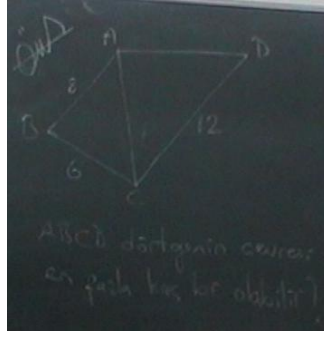 A
D
8
B
12
6
C
ABCD dörtgenin çevresi
en fazla kaç br olabilir?